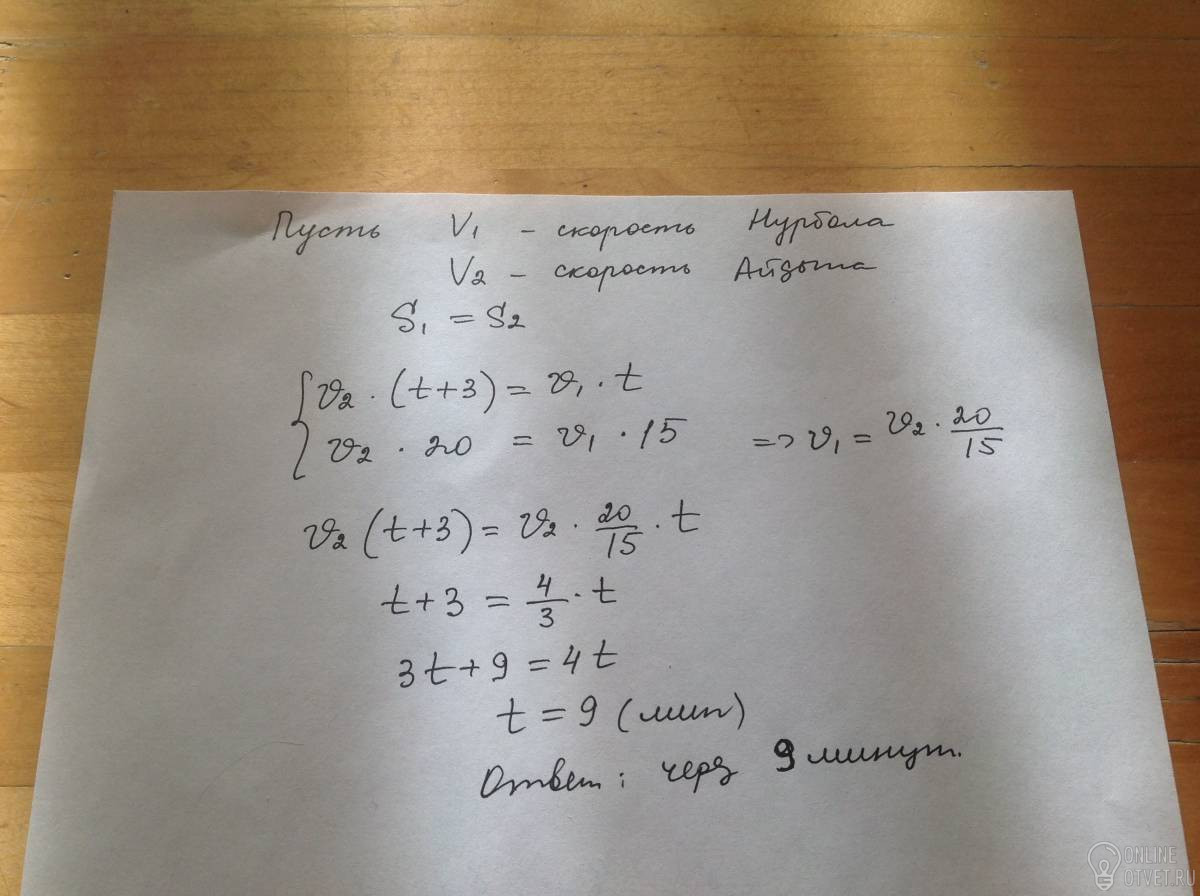 Пусть V₁ - скорость Нурбола
V₂ - скорость Айдына
S₁ = S₂
{ v₂ · (t+3) = v₁ · t
v₂ · 20 = v₁ · 15 => v₁ = v₂ · 20/15
v₂ (t+3) = v₂ · 20/15 · t
t+3 = 4/3 · t
3t+9 = 4t
t = 9 (мин)
Ответ: через 9 минут.
ONLINE
OTVET.RU